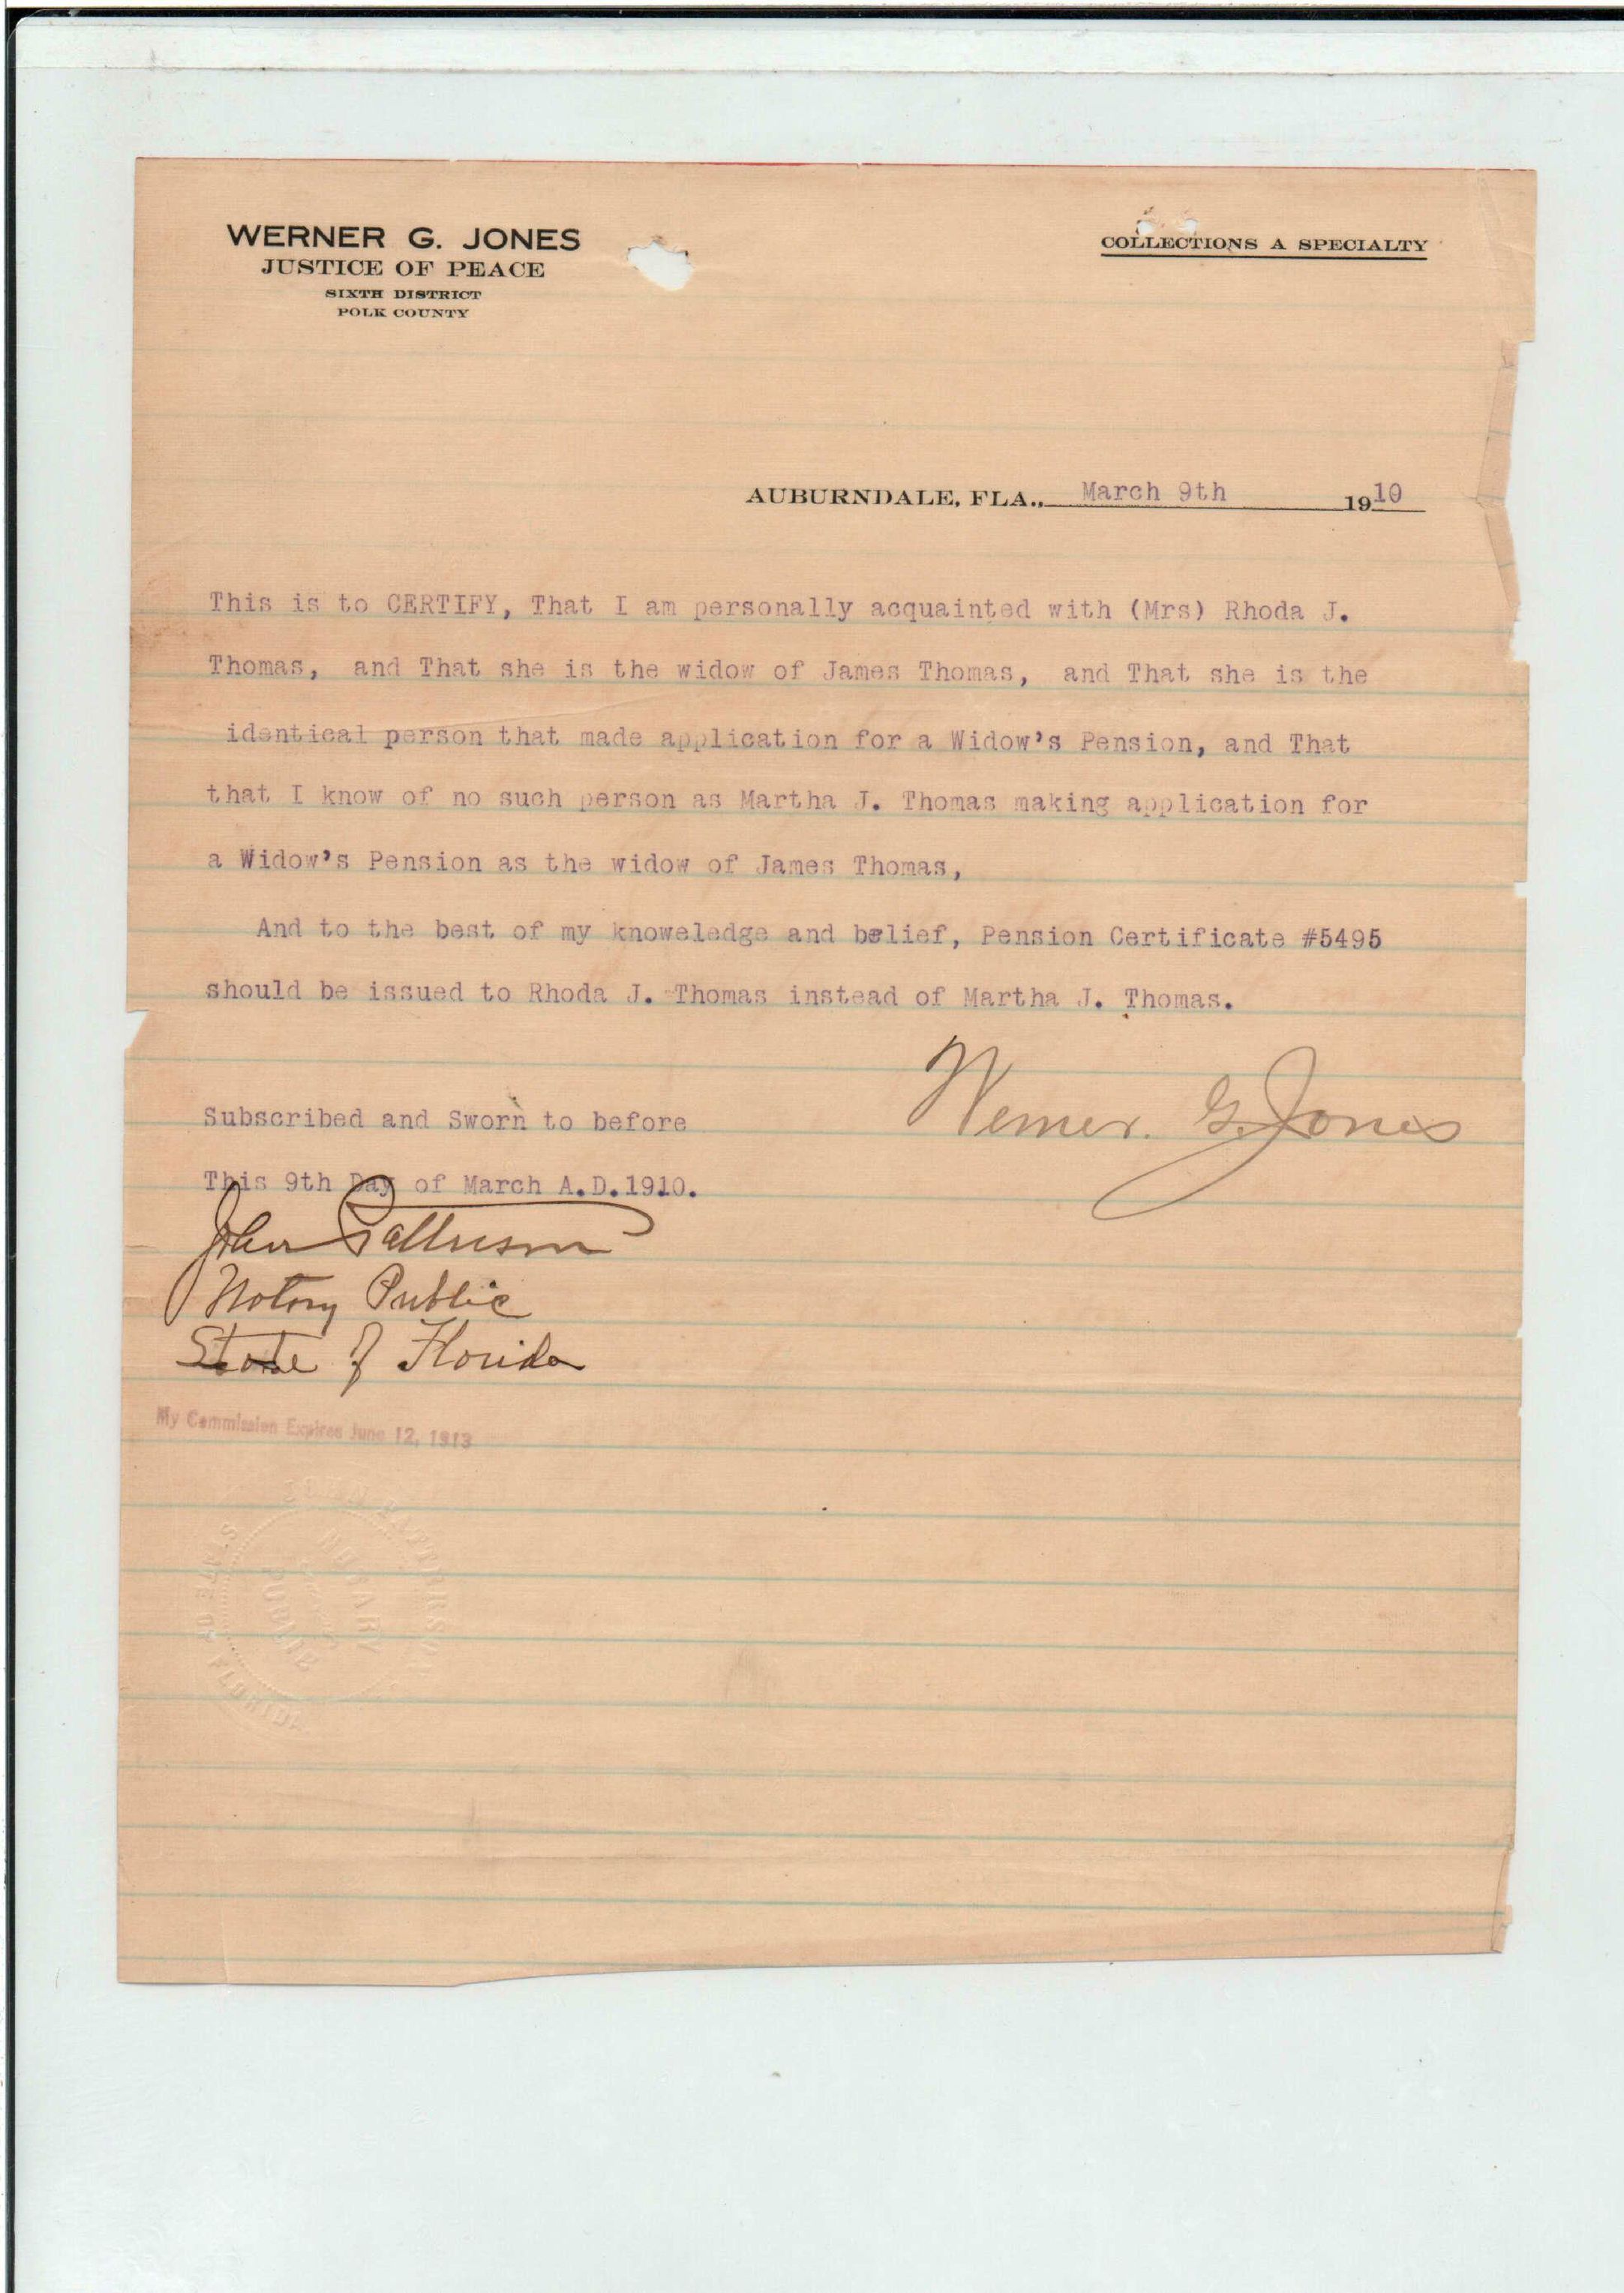 WERNER G. JONES
JUSTICE OF PEACE
SIXTH DISTRICT
POLK COUNTY
COLLECTIONS A SPECIALTY
AUBURNDALE, FLA., March 9th 1910
This is to CERTIFY, That I am personally acquainted with (Mrs) Rhoda J.
Thomas, and That she is the widow of James Thomas, and That she is the
identical person that made application for a Widow's Pension, and That
that I know of no such person as Martha J. Thomas making application for
a Widow's Pension as the widow of James Thomas,
And to the best of my knoweledge and belief, Pension Certificate #5495
should be issued to Rhoda J. Thomas instead of Martha J. Thomas.
Werner. G. Jones
Subscribed and Sworn to before
This 9th Day of March A.D.1910.
John Patterson
Notary Public
State of Florida
My Commission Expires June 12, 1913
JOHN PATTERSON
NOTARY
PUBLIC
STATE OF FLORIDA